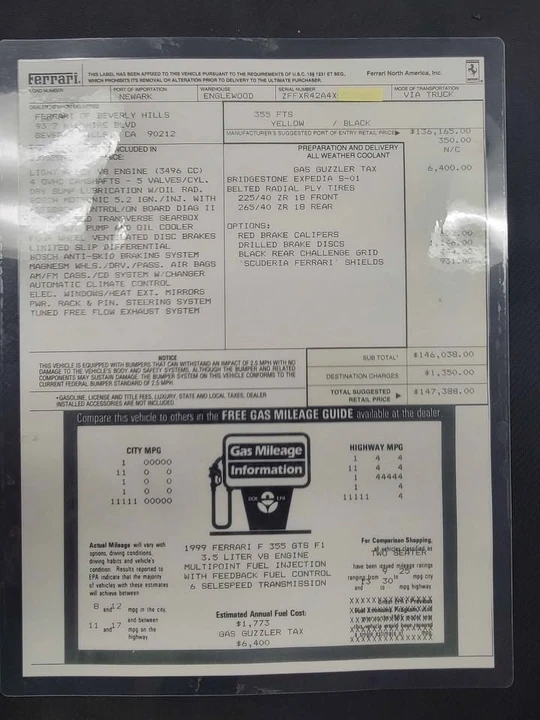 Ferrari.
THIS LABEL HAS BEEN AFFIXED TO THIS VEHICLE PURSUANT TO THE REQUIREMENTS OF U.S.C. 15§ 1231 ET SEQ.,
WHICH PROHIBITS ITS REMOVAL OR ALTERATION PRIOR TO DELIVERY TO THE ULTIMATE PURCHASER.
Ferrari North America, Inc.
PORT OF IMPORTATION
NEWARK
WAREHOUSE
ENGLEWOOD
SERIAL NUMBER
ZFFXR42A4X
MODE OF TRANSPORTATION
VIA TRUCK
FERRARI OF BEVERLY HILLS
BLVD
CA 90212
355 FTS
YELLOW / BLACK
MANUFACTURER'S SUGGESTED PORT OF ENTRY RETAIL PRICE
$136,165.00
350.00
N/C
INCLUDED IN
V8 ENGINE (3496 CC)
4 OVHD CAMSHAFTS - 5 VALVES/CYL.
DRY SUMP LUBRICATION W/OIL RAD.
BOSCH MOTRONIC 5.2 IGN./INJ. WITH
CONTROL/ON BOARD DIAG II
TRANSVERSE GEARBOX
PUMP AND OIL COOLER
WHEEL VENTILATED DISC BRAKES
LIMITED SLIP DIFFERENTIAL
BOSCH ANTI-SKID BRAKING SYSTEM
MAGNESM WHLS./DRV./PASS. AIR BAGS
AM/FM CASS./CD SYSTEM W/CHANGER
AUTOMATIC CLIMATE CONTROL
ELEC. WINDOWS/HEAT EXT. MIRRORS
PWR. RACK & PIN. STEERING SYSTEM
TUNED FREE FLOW EXHAUST SYSTEM
PREPARATION AND DELIVERY
ALL WEATHER COOLANT
GAS GUZZLER TAX 6,400.00
BRIDGESTONE EXPEDIA S-01
BELTED RADIAL PLY TIRES
225/40 ZR 18 FRONT
265/40 ZR 18 REAR
OPTIONS:
RED BRAKE CALIPERS
DRILLED BRAKE DISCS
BLACK REAR CHALLENGE GRID
'SCUDERIA FERRARI' SHIELDS
NOTICE
THIS VEHICLE IS EQUIPPED WITH BUMPERS THAT CAN WITHSTAND AN IMPACT OF 2.5 MPH WITH NO
DAMAGE TO THE VEHICLE'S BODY AND SAFETY SYSTEMS, ALTHOUGH THE BUMPER AND RELATED
COMPONENTS MAY SUSTAIN DAMAGE. THE BUMPER SYSTEM ON THIS VEHICLE CONFORMS TO THE
CURRENT FEDERAL BUMPER STANDARD OF 2.5 MPH.
• GASOLINE, LICENSE AND TITLE FEES, LUXURY, STATE AND LOCAL TAXES, DEALER
INSTALLED ACCESSORIES ARE NOT INCLUDED.
SUB TOTAL $146,038.00
DESTINATION CHARGES $1,350.00
TOTAL SUGGESTED
RETAIL PRICE $147,388.00
Compare this vehicle to others in the FREE GAS MILEAGE GUIDE available at the dealer
CITY MPG
1 00000
11 0 0
1 0 0
1 0 0
11111 00000
Gas Mileage
Information
DOE EPA
HIGHWAY MPG
1 4 4
11 4 4
1 44444
1 4
11111 4
Actual Mileage will vary with
options, driving conditions,
driving habits and vehicle's
condition. Results reported to
EPA indicate that the majority
of vehicles with these estimates
will achieve between
8 and 12 mpg in the city,
and between
11 and 17 mpg on the
highway
1999 FERRARI F 355 GTS F1
3.5 LITER V8 ENGINE
MULTIPOINT FUEL INJECTION
WITH FEEDBACK FUEL CONTROL
6 SELESPEED TRANSMISSION
Estimated Annual Fuel Cost:
$1,773
GAS GUZZLER TAX
$6,400
For Comparison Shopping,
all vehicles classified as
TWO SEATER
have been issued mileage ratings
ranging from 9 to 25 mpg city
and 13 to 30 mpg highway.